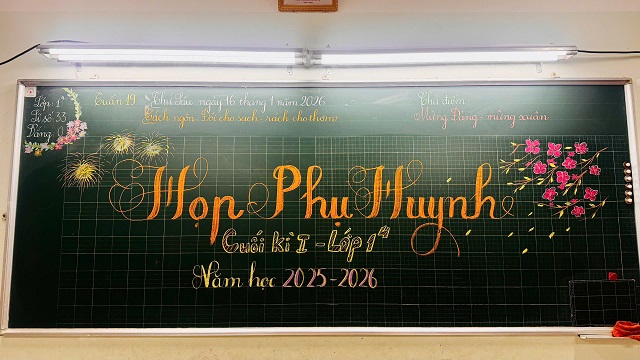 Lớp: 1⁴
Sĩ số: 33
Vắng: 0
Tuần 19 Thứ Sáu ngày 16 tháng 1 năm 2026
Cách ngôn - Đói cho sạch - rách cho thơm
Chủ điểm
Mừng Đảng - mừng xuân
Họp Phụ Huynh
Cuối kì I - Lớp 1⁴
Năm học 2025-2026